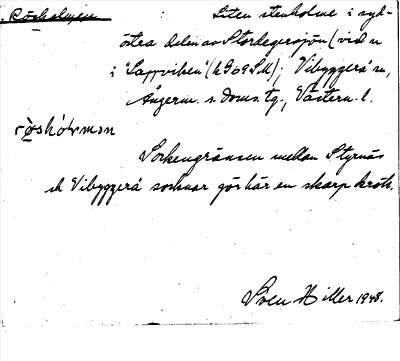 Rösholmen Liten stenholme i syd-
östra delen av Stordegersjön (vid n
i "Lappviken" (h969SM); Vibyggerå sn,
Ångerm. s. doms. tg., Västern. l.
Sockengränsen mellan Styrnäs
och Vibyggerå socknar gör här en skarp krök.
Sven Hiller 1948.